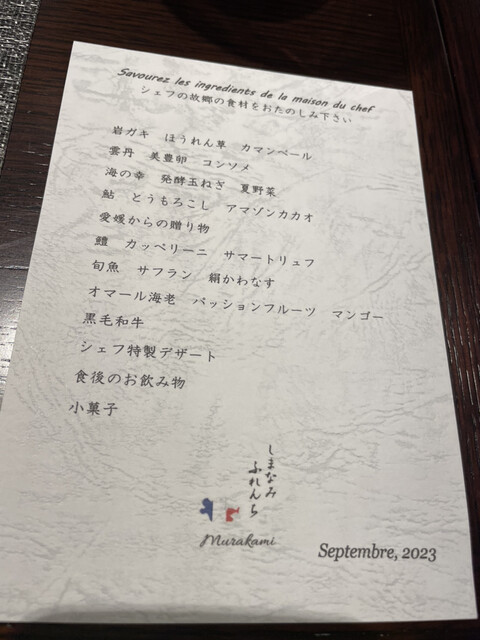 Savourez les ingredients de la maison du chef
シェフの故郷の食材をおたのしみ下さい
岩ガキ　ほうれん草　カマンベール
雲丹　美豊卵　コンソメ
海の幸　発酵玉ねぎ　夏野菜
鮎　とうもろこし　アマゾンカカオ
愛媛からの贈り物
鱧　カッペリーニ　サマートリュフ
旬魚　サフラン　絹かわなす
オマール海老　パッションフルーツ　マンゴー
黒毛和牛
シェフ特製デザート
食後のお飲み物
小菓子
しまなみ
ふれんち
Murakami
Septembre, 2023